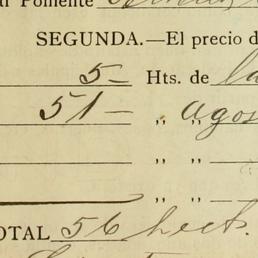 Poniente
SEGUNDA.—El precio d
5— Hts. de la
51— „ „ agos
„ „
„ „
OTAL 56 hects.